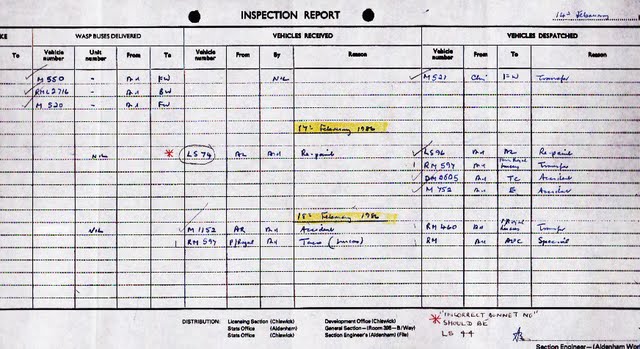 INSPECTION REPORT
14th February
KE WASP BUSES DELIVERED VEHICLES RECEIVED VEHICLES DESPATCHED
To Vehicle number Unit number From To Vehicle number From To Reason Vehicle number From To Reason
M 550 - Ad FW NIL M 521 Chi FW Transfer
RML 2716 - Ad BW
M 520 - Ad FW
17th February 1986
NIL * LS 74 AL Ad Re-paint LS 96 Ad AL Re-paint
1 RM 597 Ad Transfer
DM 2605 Ad TC Accident
M 752 Ad E Accident
18th February 1986
NIL M 1152 AR Ad Accident 1 RM 460 Ad P/Royal Transfer
1 RM 597 P/Royal Ad 1 RM Ad Special
DISTRIBUTION: Licensing Section (Chiswick) Development Office (Chiswick)
Stats Office (Aldenham) General Section-(Room 395-B/Way)
Stats Office (Aldenham) Section Engineer's (Aldenham) (File)
* "INCORRECT BONNET NO"
SHOULD BE
LS 94
Section Engineer-(Aldenham Wor